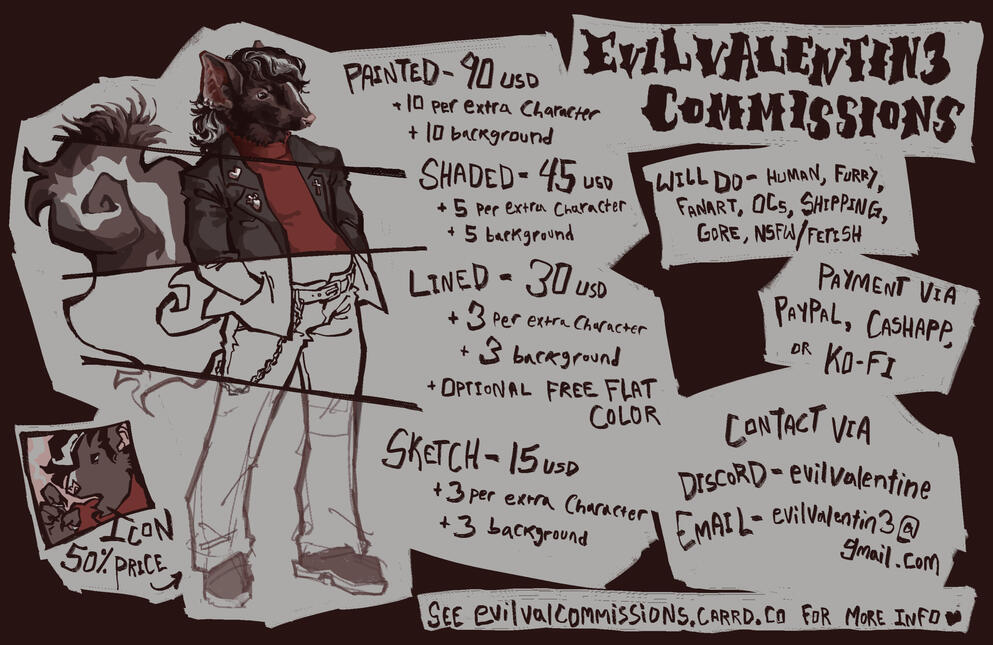 EVILVALENTIN3
COMMISSIONS
PAINTED - 90 USD
+10 per extra Character
+10 background
SHADED - 45 USD
+5 per extra Character
+5 background
LINED - 30 USD
+3 Per extra Character
+3 background
+OPTIONAL FREE FLAT
COLOR
SKETCH - 15 USD
+3 per extra Character
+3 background
ICON
50% PRICE
WILL DO - HUMAN, FURRY,
FANART, OCs, SHIPPING,
GORE, NSFW/FETISH
PAYMENT VIA
PAYPAL, CASHAPP,
OR KO-FI
CONTACT VIA
DISCORD - evilvalentine
EMAIL - evilvalentin3@
gmail.com
SEE evilvalcommissions.CARRD.CO FOR MORE INFO ♥